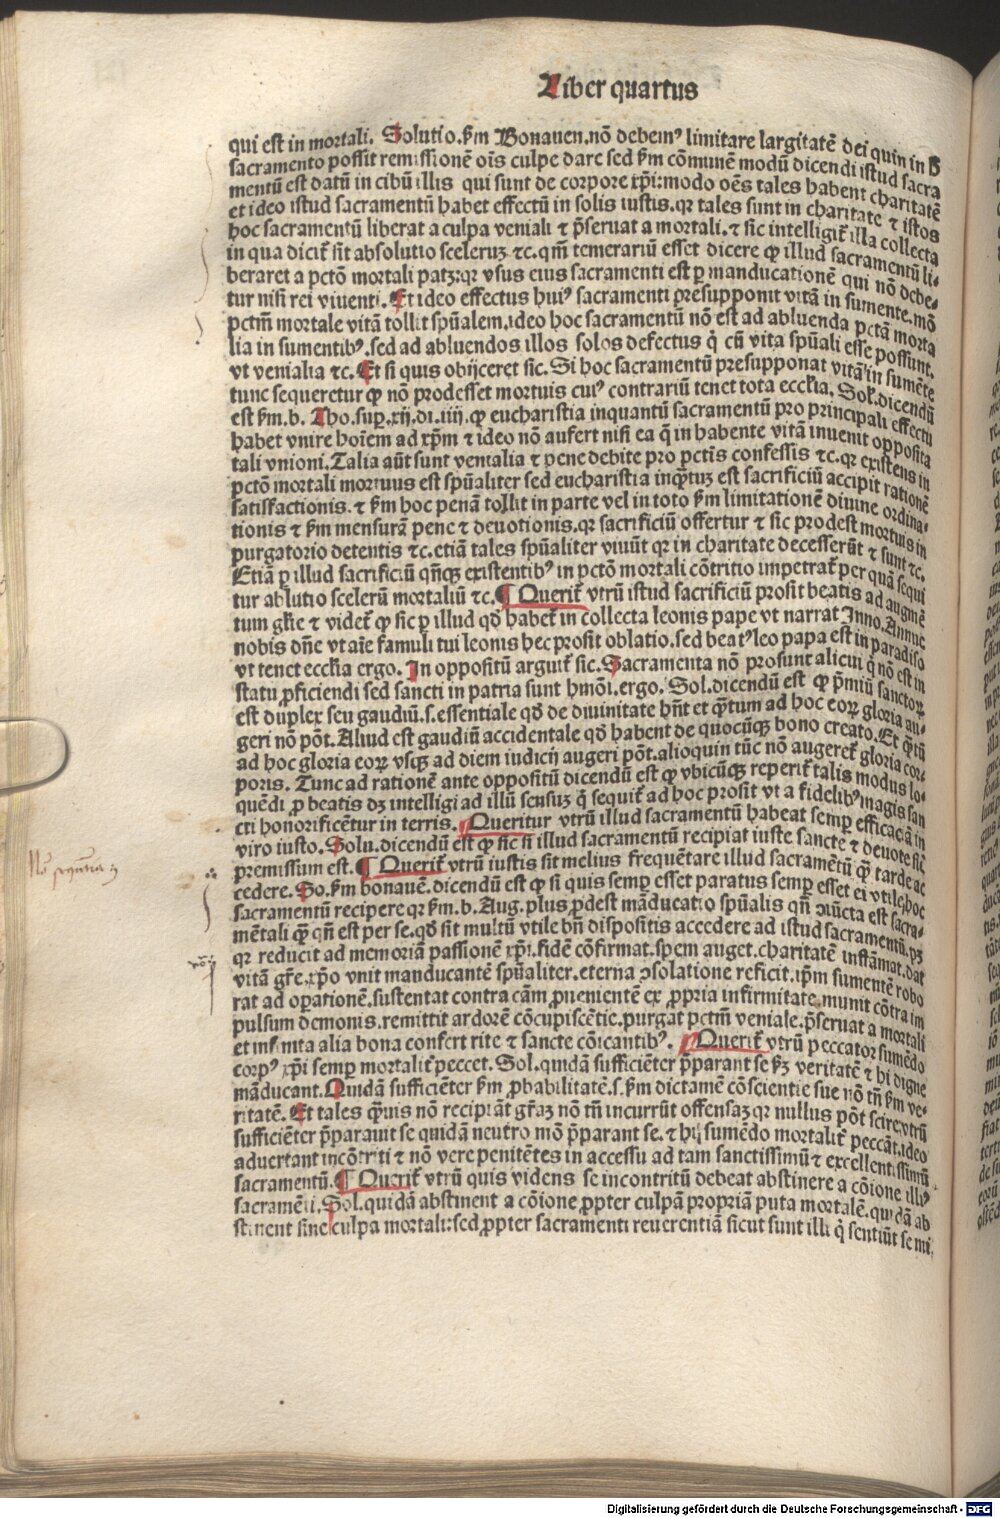 Liber quartus
qui est in mortali. Solutio. ẜm Bonauen. nō debemꝰ limitare largitatē dei quin in
sacramento possit remissionē oīs culpe dare sed ẜm cōmunē modū dicendi istud sacra
mentū est datū in cibū illis qui sunt de corpore xp̄i: modo oēs tales habent charitatē
et ideo istud sacramentū habet effectū in solis iustis. qꝛ tales sunt in charitate ⁊ istos
hoc sacramentū liberat a culpa veniali ⁊ p̄seruat a mortali. ⁊ sic intelligit̄ illa collecta
in qua dicit̄ sit absolutio sceleruꝫ ⁊c. qm̄ temerariū esset dicere ꝙ illud sacramentū li⸗
beraret a pctō mortali patꝫ: qꝛ vsus eius sacramenti est ꝑ manducationē qui nō debe⸗
tur nisi rei viuenti. Et ideo effectus huiꝰ sacramenti presupponit vitā in sumente. mō
pctm̄ mortale vitā tollit spūalem. ideo hoc sacramentū nō est ad abluenda pctā morta
lia in sumentibꝰ. sed ad abluendos illos solos defectus q̇ cū vita spūali esse possunt.
vt venialia ⁊c. Et si quis obijceret sic. Si hoc sacramentū presupponat vitā in sumēte
tunc sequeretur ꝙ nō prodesset mortuis cuiꝰ contrariū tenet tota eccl̄ia. Sol. dicendū
est ẜm. b. Tho. sup. xij. di. iiij. ꝙ eucharistia inquantū sacramentū pro principali effectu
habet vnire hoīem ad xp̄m ⁊ ideo nō aufert nisi ea q̄ in habente vitā inuenit opposita
tali vnioni. Talia aūt sunt venialia ⁊ pene debite pro pctīs confessis ⁊c. qꝛ existens in
pctō mortali mortuus est spūaliter sed eucharistia inq̄tuꝫ est sacrificiū accipit rationē
satisfactionis. ⁊ ẜm hoc penā tollit in parte vel in toto ẜm limitationē diuine ordina⸗
tionis ⁊ ẜm mensurā pene ⁊ deuotionis. qꝛ sacrificiū offertur ⁊ sic prodest mortuis in
purgatorio detentis ⁊c. etiā tales spūaliter viuūt qꝛ in charitate decesserūt ⁊ sunt ⁊c.
Etiā ꝑ illud sacrificiū qn̄qꝫ existentibꝰ in pctō mortali cōtritio impetrat̄ per quā sequi
tur ablutio scelerū mortaliū ⁊c. ¶ Querit̄ vtrū istud sacrificiū prosit beatis ad augmē
tum gl̄ie ⁊ videt̄ ꝙ sic ꝑ illud qd̄ habet̄ in collecta leonis pape vt narrat Inno. Annue
nobis dn̄e vt aīe famuli tui leonis hec prosit oblatio. sed beatꝰ leo papa est in paradiso
vt tenet eccl̄ia ergo. In oppositū arguit̄ sic. Sacramenta nō prosunt alicui q̇ nō est in
statu ꝓficiendi sed sancti in patria sunt hm̄oi. ergo. Sol. dicendū est ꝙ p̄miū sanctoꝝ
est duplex seu gaudiū. s. essentiale qd̄ de diuinitate hn̄t et q̄tum ad hoc eoꝝ gloria au⸗
geri nō pōt. Aliud est gaudiū accidentale qd̄ habent de quocūqꝫ bono creato. Et q̄tū
ad hoc gloria eoꝝ vsqꝫ ad diem iudicij augeri pōt. alioquin tūc nō augeret̄ gloria cor⸗
poris. Tunc ad rationē ante oppositū dicendū est ꝙ vbicūqꝫ reperit̄ talis modus lo⸗
quēdi ꝓ beatis dꝫ intelligi ad illū sensuꝫ q̇ sequit̄ ad hoc prosit vt a fidelibꝰ magis san
cti honorificētur in terris. ¶ Queritur vtrū illud sacramentū habeat semꝑ efficaciā in
viro iusto. Solu. dicendū est ꝙ sic si illud sacramentū recipiat iuste sancte ⁊ deuote sic̄
premissum est. ¶ Querit̄ vtrū iustis sit melius frequētare illud sacramētū q̄ tarde ac
cedere. So. ẜm bonauē. dicendū est ꝙ si quis semꝑ esset paratus semꝑ esset ei vtile hoc
sacramentū recipere qꝛ ẜm. b. Aug. plus ꝓdest māducatio spūalis qn̄ ꝯiūcta est sacra⸗
mētali q̄ qn̄ est per se. qd̄ sit multū vtile bn̄ dispositis accedere ad istud sacramentū. pꝫ
qꝛ reducit ad memoriā passionē xp̄i. fidē cōfirmat. spem auget. charitatē inflāmat. dat
vitā gr̄e. xp̄o vnit manducantē spūaliter. eterna ꝯsolatione reficit. ip̄m sumentē robo
rat ad oꝑationē. sustentat contra cām ꝓuenientē ex ꝓpria infirmitate. munit cōtra im
pulsum demonis. remittit ardorē cōcupiscētie. purgat pctm̄ veniale. p̄seruat a mortali
et infinita alia bona confert rite ⁊ sancte cōicantibꝰ. ¶ Querit̄ vtrū peccator sumēdo
corpꝰ xp̄i semꝑ mortalit̄ peccet. Sol. quidā sufficiēter p̄parant se ẜꝫ veritatē ⁊ hi digne
māducant. Quidā sufficiēter ẜm ꝓbabilitatē. s. ẜm dictamē cōscientie sue nō tn̄ ẜm ve⸗
ritatē. Et tales q̄uis nō recipiāt gr̄aꝫ nō tn̄ incurrūt offensaꝫ qꝛ nullus pōt scire vtrū
sufficiēter p̄parauit se quidā neutro mō p̄parant se. ⁊ hij sumēdo mortalit̄ peccāt. ideo
aduertant incōtriti ⁊ nō vere penitētes in accessu ad tam sanctissimū ⁊ excellentissimū
sacramentū. ¶ Querit̄ vtrū quis videns se incontritū debeat abstinere a cōione illiꝰ
sacramēti. Sol. quidā abstinent a cōione ꝓpter culpā propriā puta mortalē. quidā ab
stinent sine culpa mortali: sed ꝓpter sacramenti reuerentiā sicut sunt illi q̇ sentiūt se mi
Digitalisierung gefördert durch die Deutsche Forschungsgemeinschaft - DFG